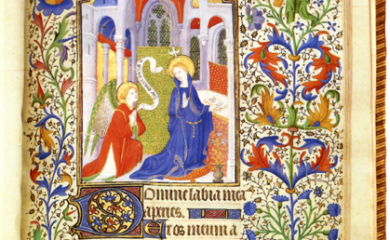 Domine labia mea
aperies.
Et os meum a